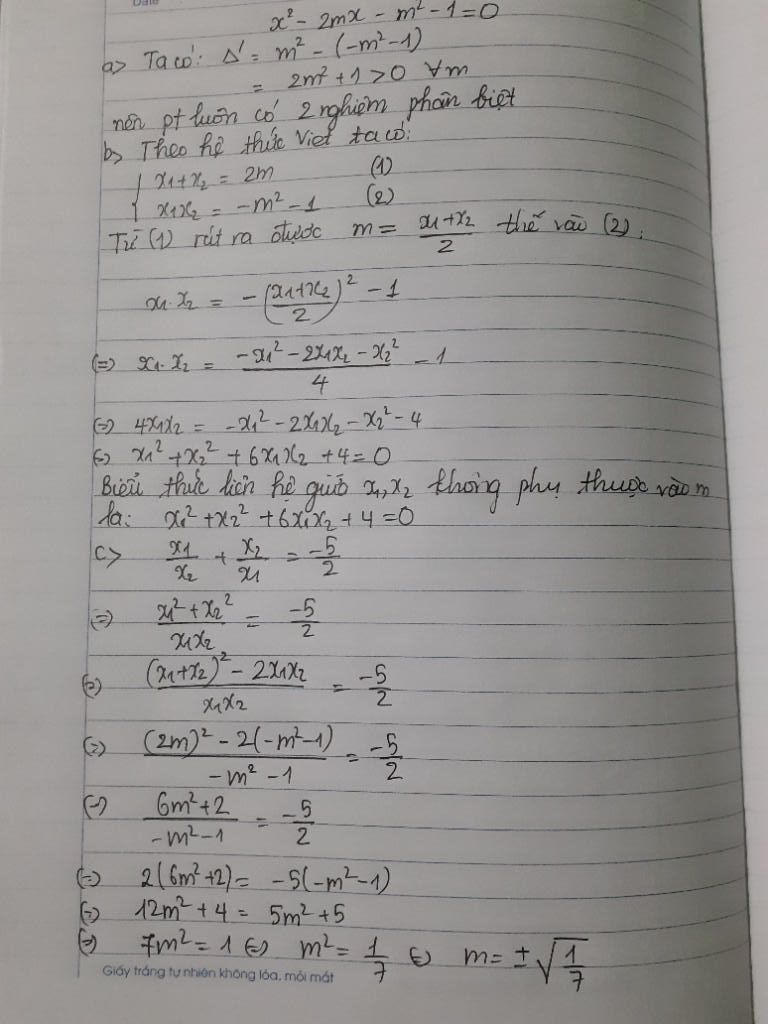 Date
x² - 2mx - m² - 1 = 0
a> Ta có: Δ' = m² - (-m² - 1)
= 2m² + 1 > 0 ∀m
nên pt luôn có 2 nghiệm phân biệt
b> Theo hệ thức Viet ta có:
{ x₁ + x₂ = 2m (1)
x₁x₂ = -m² - 1 (2)
Từ (1) rút ra được m = (x₁ + x₂)/2 thế vào (2):
x₁.x₂ = -((x₁ + x₂)/2)² - 1
(=) x₁.x₂ = (-x₁² - 2x₁x₂ - x₂²)/4 - 1
(=) 4x₁x₂ = -x₁² - 2x₁x₂ - x₂² - 4
(=) x₁² + x₂² + 6x₁x₂ + 4 = 0
Biểu thức liên hệ giữa x₁, x₂ không phụ thuộc vào m
là: x₁² + x₂² + 6x₁x₂ + 4 = 0
c> x₁/x₂ + x₂/x₁ = -5/2
(=) (x₁² + x₂²)/(x₁x₂) = -5/2
(=) ((x₁ + x₂)² - 2x₁x₂)/(x₁x₂) = -5/2
(=) ((2m)² - 2(-m² - 1))/(-m² - 1) = -5/2
(=) (6m² + 2)/(-m² - 1) = -5/2
(=) 2(6m² + 2) = -5(-m² - 1)
(=) 12m² + 4 = 5m² + 5
(=) 7m² = 1 (=) m² = 1/7 (=) m = ±√(1/7)
Giấy trắng tự nhiên không lóa, mỏi mắt